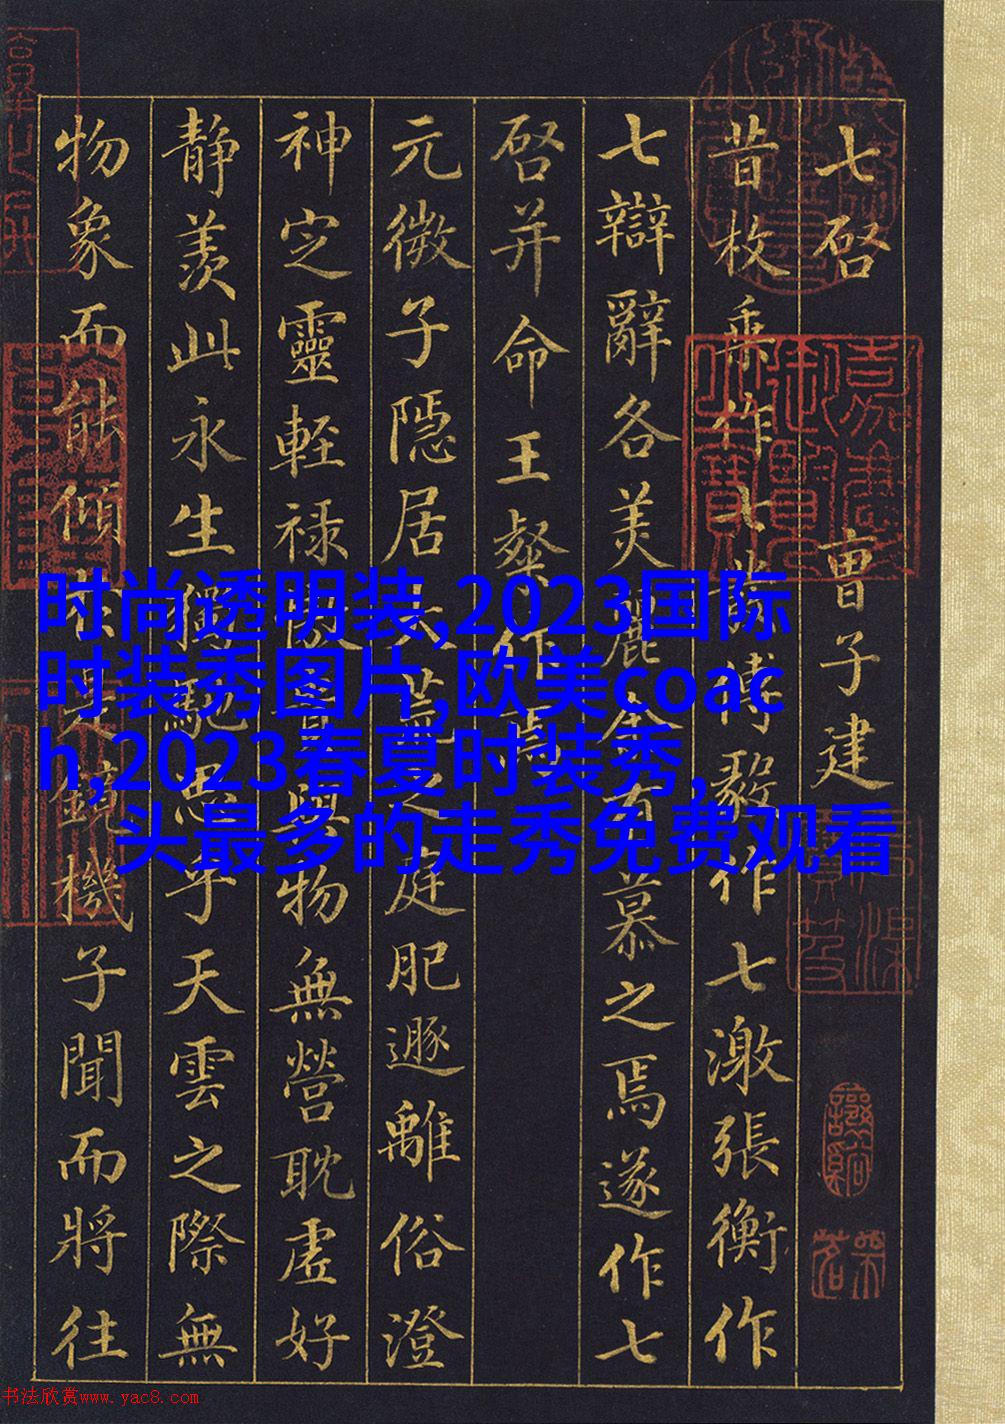 七啓 曹子建
昔枚乘作七傅毅作七激張衡作
七辯辭各美麗余有慕之焉遂作七
啓并命王粲作焉
元微子隱居大荒之庭肥遯離俗澄
神定靈輕禄傲貴與物無營耽虛好
静羡此永生獨馳思乎天雲之際無
物象而能傾於是鏡機子聞而將往
嘉慶御覽之寶
时尚透明装,2023国际
时装秀图片,欧美coac
h,2023春夏时装秀,
头最多的走秀免费观看
书法欣赏www.yac8.com